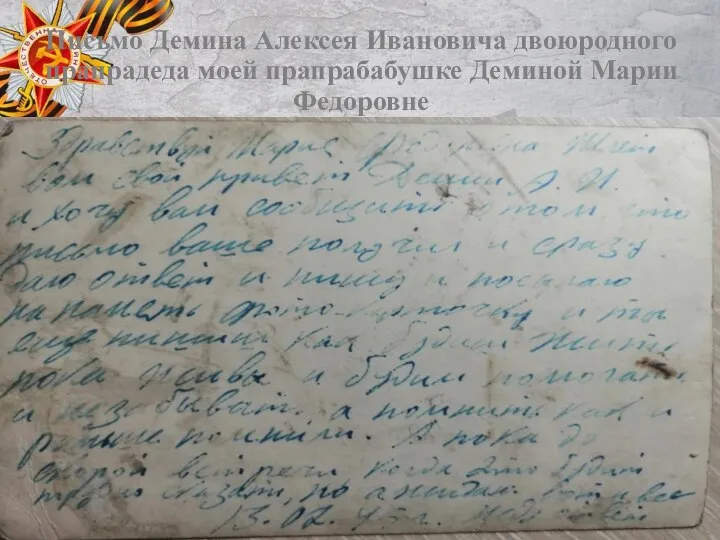 Письмо Демина Алексея Ивановича двоюродного
прапрадеда моей прапрабабушке Деминой Марии
Федоровне
ОТЕЧЕСТВЕННАЯ
Здравствуй Мария Федоровна Шлет
вам свой привет Демин А. И.
и хочу вам сообщить о том что
письмо ваше получил и сразу
даю ответ и пишу и посылаю
на память фото-карточку и ты
еще пиши как будим жить
пока живы и будим помогать
и незабывать, а помнить как и
раньше помнили. А пока до
скорой встречи когда это будит
трудно сказать, но ожидай
13. 02. 45 г.